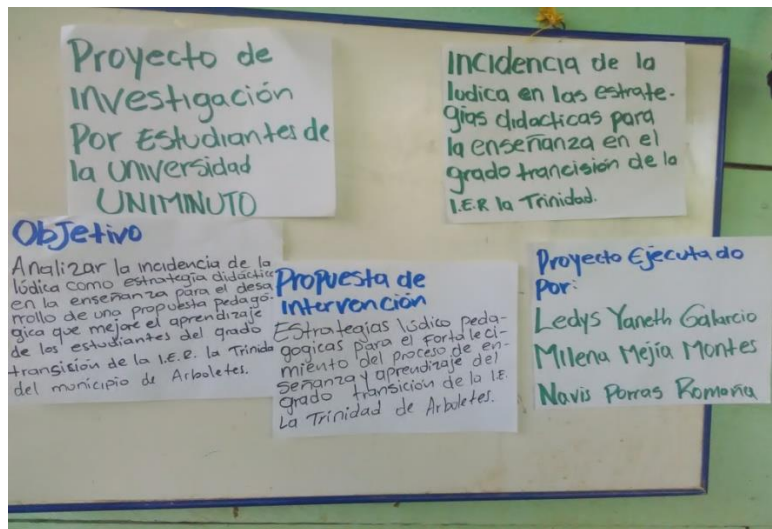 Proyecto de
investigación
Por Estudiantes de
la Universidad
UNIMINUTO
Incidencia de la
ludica en las estrate-
gias didacticas para
la enseñanza en el
grado trancisión de la
I.E.R la Trinidad.
Objetivo
Analizar la incidencia de la
lúdica como estrategia didáctica
en la enseñanza para el desa
rrollo de una propuesta pedagó-
gica que mejore el aprendizaje
de los estudiantes del grado
transisión de la I.E.R. la Trinida
del municipio de Arboletes.
Propuesta de
Intervención
Estrategias lúdico peda-
gogicas para el fortaleci-
miento del proceso de en-
señanza y aprendizaje del
grado transición de la I.E.
La Trinidad de Arboletes.
Proyecto Ejecutado
Por:
Ledys Yaneth Galarcio
Milena Mejía Montes
Navis Porras Romaña